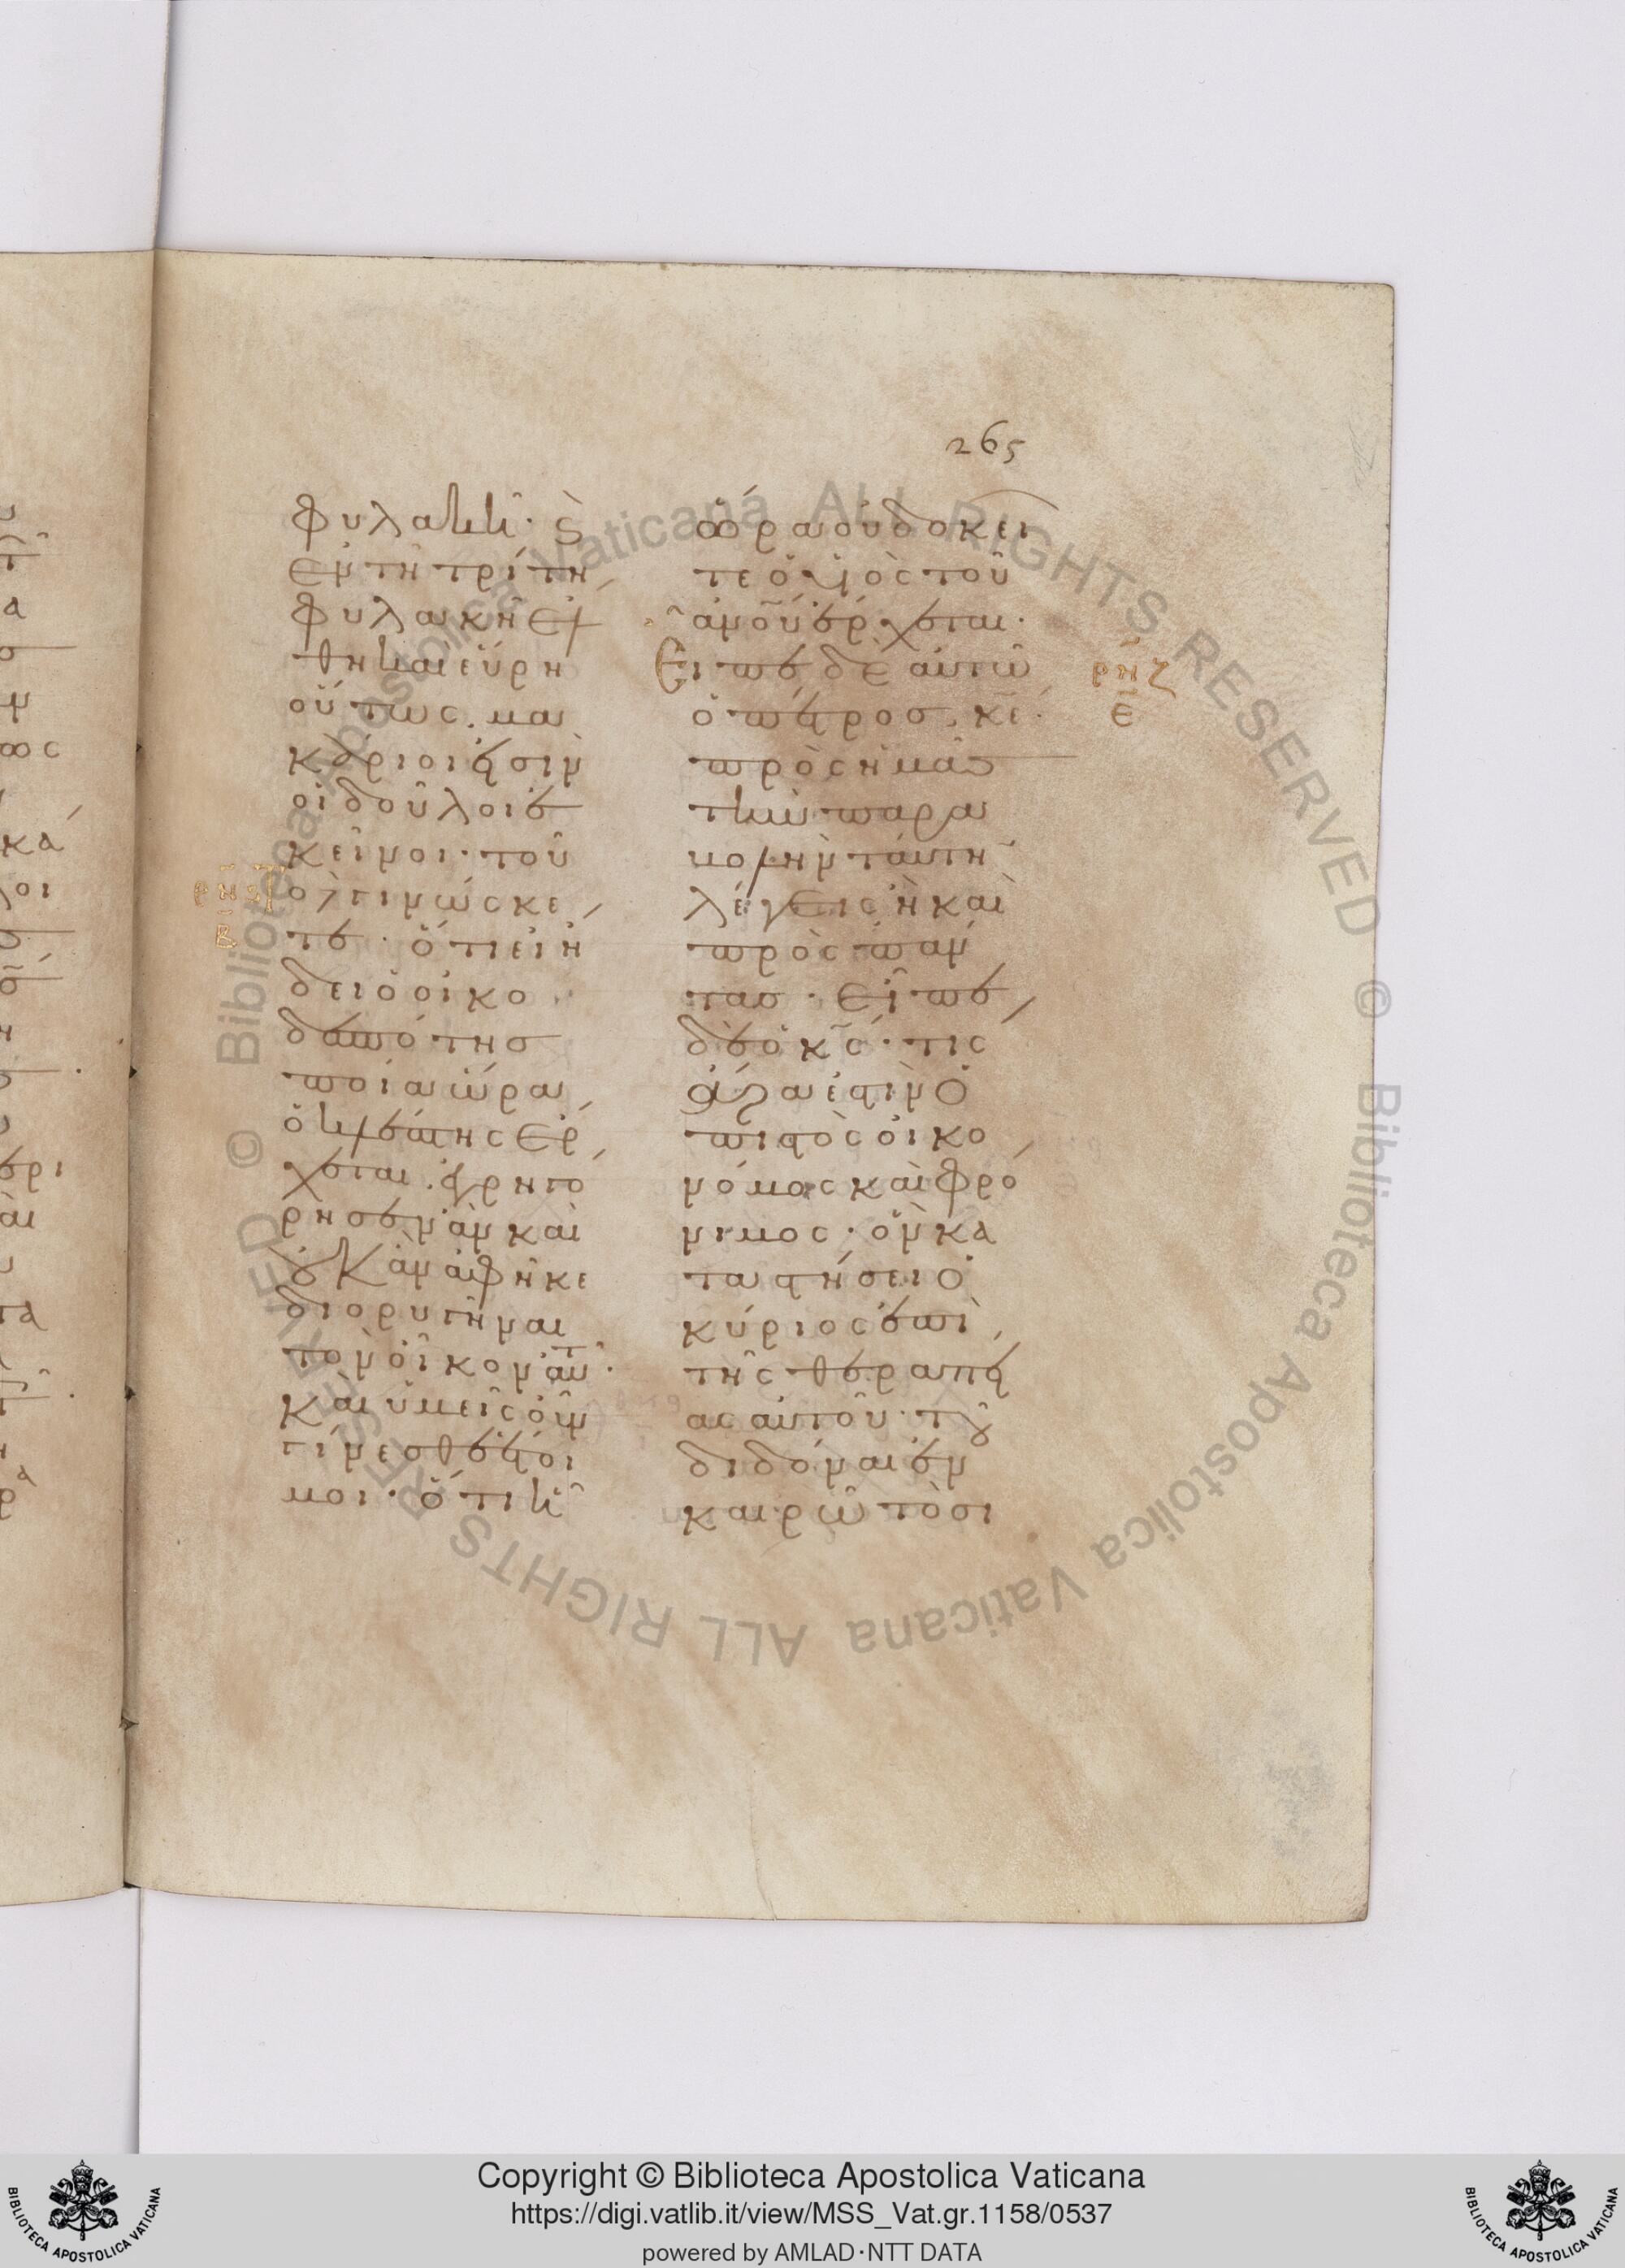 265
φυλακῆ· ϛ̀
ἐν τῆ τρίτη
φυλακῆ ἔλ
θη καὶ εὕρη
οὕτως. μα
κάριοί εἰσιν
οἱ δοῦλοι ἐ
κεῖνοι· τοῦ
ρῆϛ
β
ο γινώσκε
τε· ὅτι εἰ ἤ
δει ὁ οἰκο
δεσπότησ
ποία ὥρα
ὁ κλέπτης ἔρ
χεται. ἐγρηγό
ρησεν ἂν καὶ
οὐκ ἂν ἀφῆκε
διορυγῆναι
τὸν οἶκον αὐτ̅·
καὶ ὑμεῖς οὖν
γίνεσθε ἕτοι
μοι· ὅτι ἧ
ὥρα οὐ δοκεῖ
τε ὁ υἱὸς τοῦ
ἀν̅ου ἔρχεται·
Εἶπε δὲ αὐτῶ
ρῆζ
ε
ὁ πέτροσ. κε̅·
πρὸς ἡμᾶς
τὴν παρα
βολὴν ταύτη
λέγεις ἢ καὶ
πρὸς πάν
τασ· εἶπε
δὲ ὁ κ̅ς· τίς
ἄρα ἐστὶν ὁ
πιστὸς οἰκο
νόμος καὶ φρό
νιμος· ὃν κα
ταστήσει ὁ
κύριος ἐπὶ
τῆς θεραπεί
ας αὐτοῦ· τοῦ
διδόναι ἐν
καιρῶ τὸ σι
Copyright © Biblioteca Apostolica Vaticana
https://digi.vatlib.it/view/MSS_Vat.gr.1158/0537
powered by AMLAD·NTT DATA